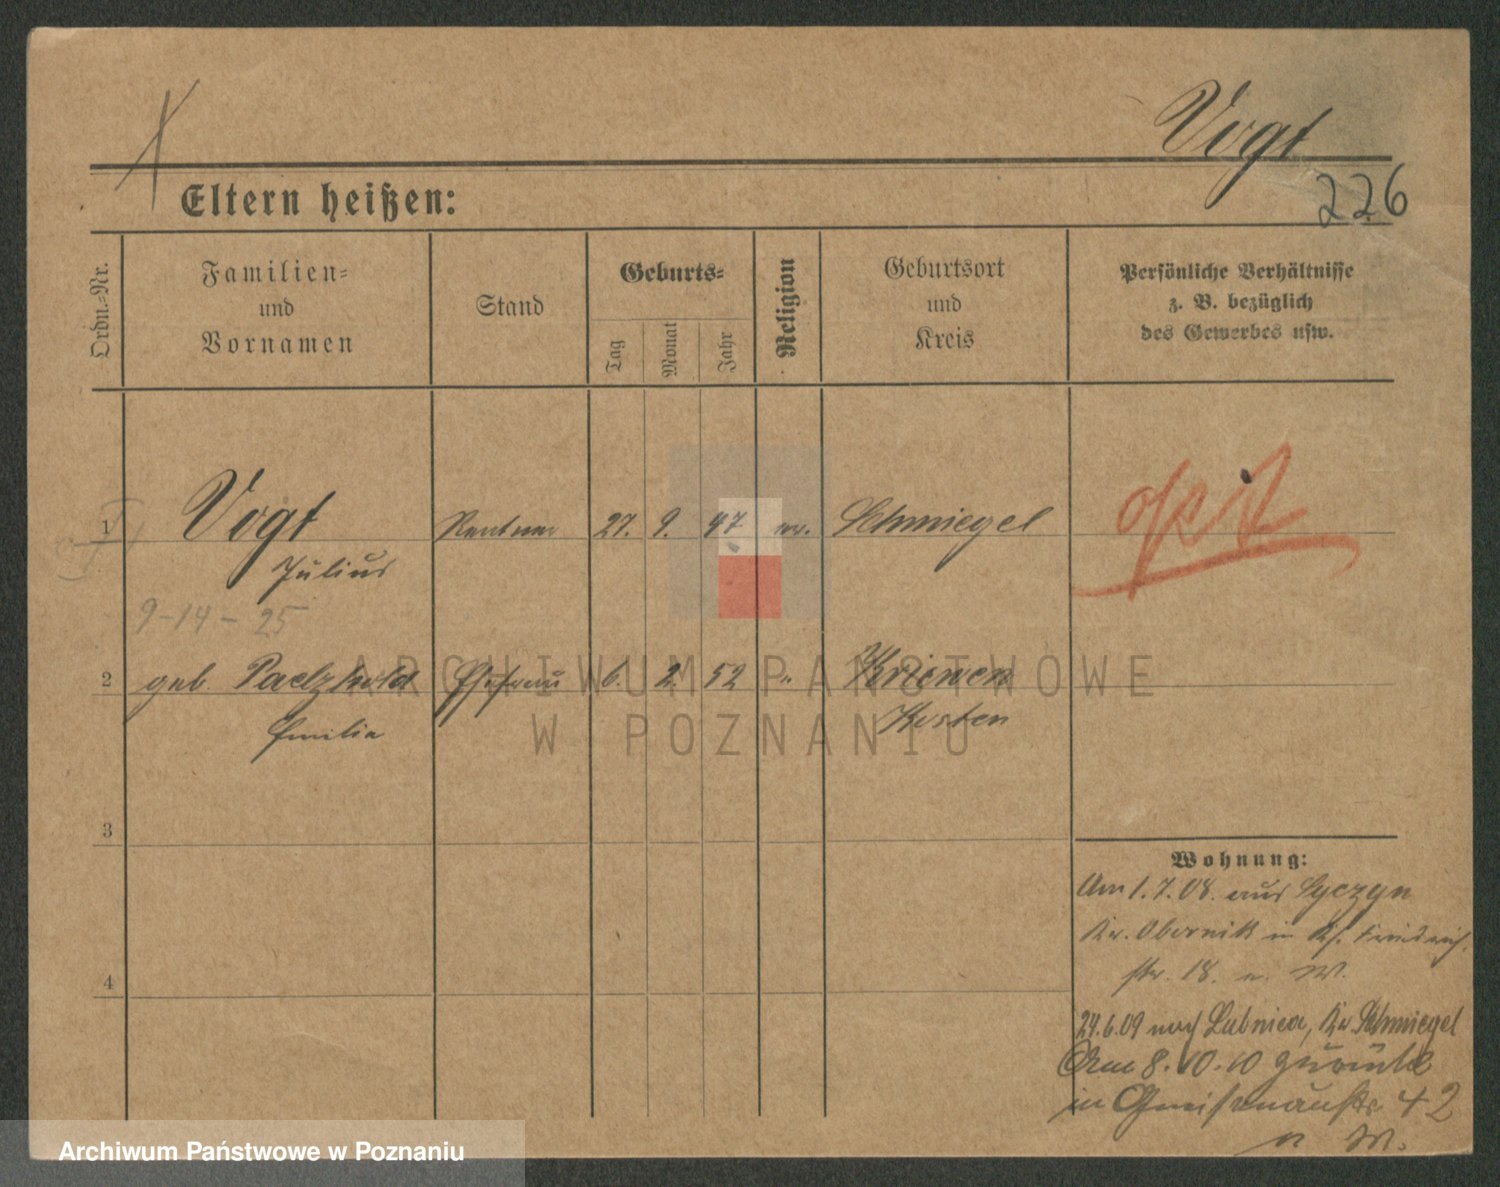 Vogt
226
Eltern heißen:
Ordn.-Nr.
Familien-
und
Vornamen
Stand
Geburts-
Tag
Monat
Jahr
Religion
Geburtsort
und
Kreis
Persönliche Verhältnisse
z. B. bezüglich
des Gewerbes usw.
1 Vogt Rentner 27. 9. 47 ev. Schmiegel
Julius
9-14-25
2 geb. Paetzhold Ehefrau 6. 2. 52 " Kriewen
Emilie Kosten
3
4
Wohnung:
Am 1.7.08. aus
Kr. Obornik in Friedrich
str. 18. n. W.
24.6.09 nach Lubnica, Kr Schmiegel
Am 8.10.10 zurück
in Gneisenaustr. 42
n W.
ARCHIWUM PAŃSTWOWE
W POZNANIU
Archiwum Państwowe w Poznaniu